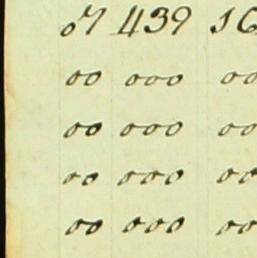 07 439 10
00 000 00
00 000 00
00 000 00
00 000 00